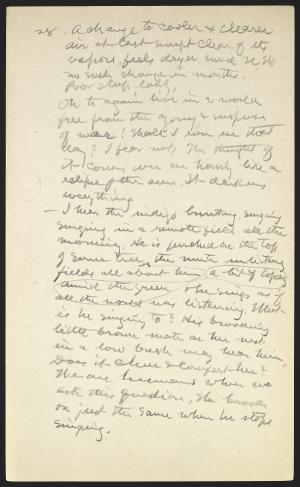 28. A change to cooler & clearer
air at last swept clear of its
vapors, feels dryer wind N.W.
no such change in months.
Poor sleep, cold,
Oh to again live in a world
free from the agony & suspense
of war! Shall I ever see that
day? I fear not, The thought of
it comes over me hourly like a
eclipse of the sun. It darkens
everything
— I hear the indigo bunting singing
singing in a remote field all the
morning. He is perched on the top
of some tree, the mute unlistening
fields all about him, a bit of
amid the green & he sings as if
all the world was listening. What
is he singing to? His brooding
little brown mate on her nest
in a low bush may hear him,
Does it cheer & comfort her?
We are humans when we
ask this question, she broods
on just the same when he stops
singing.